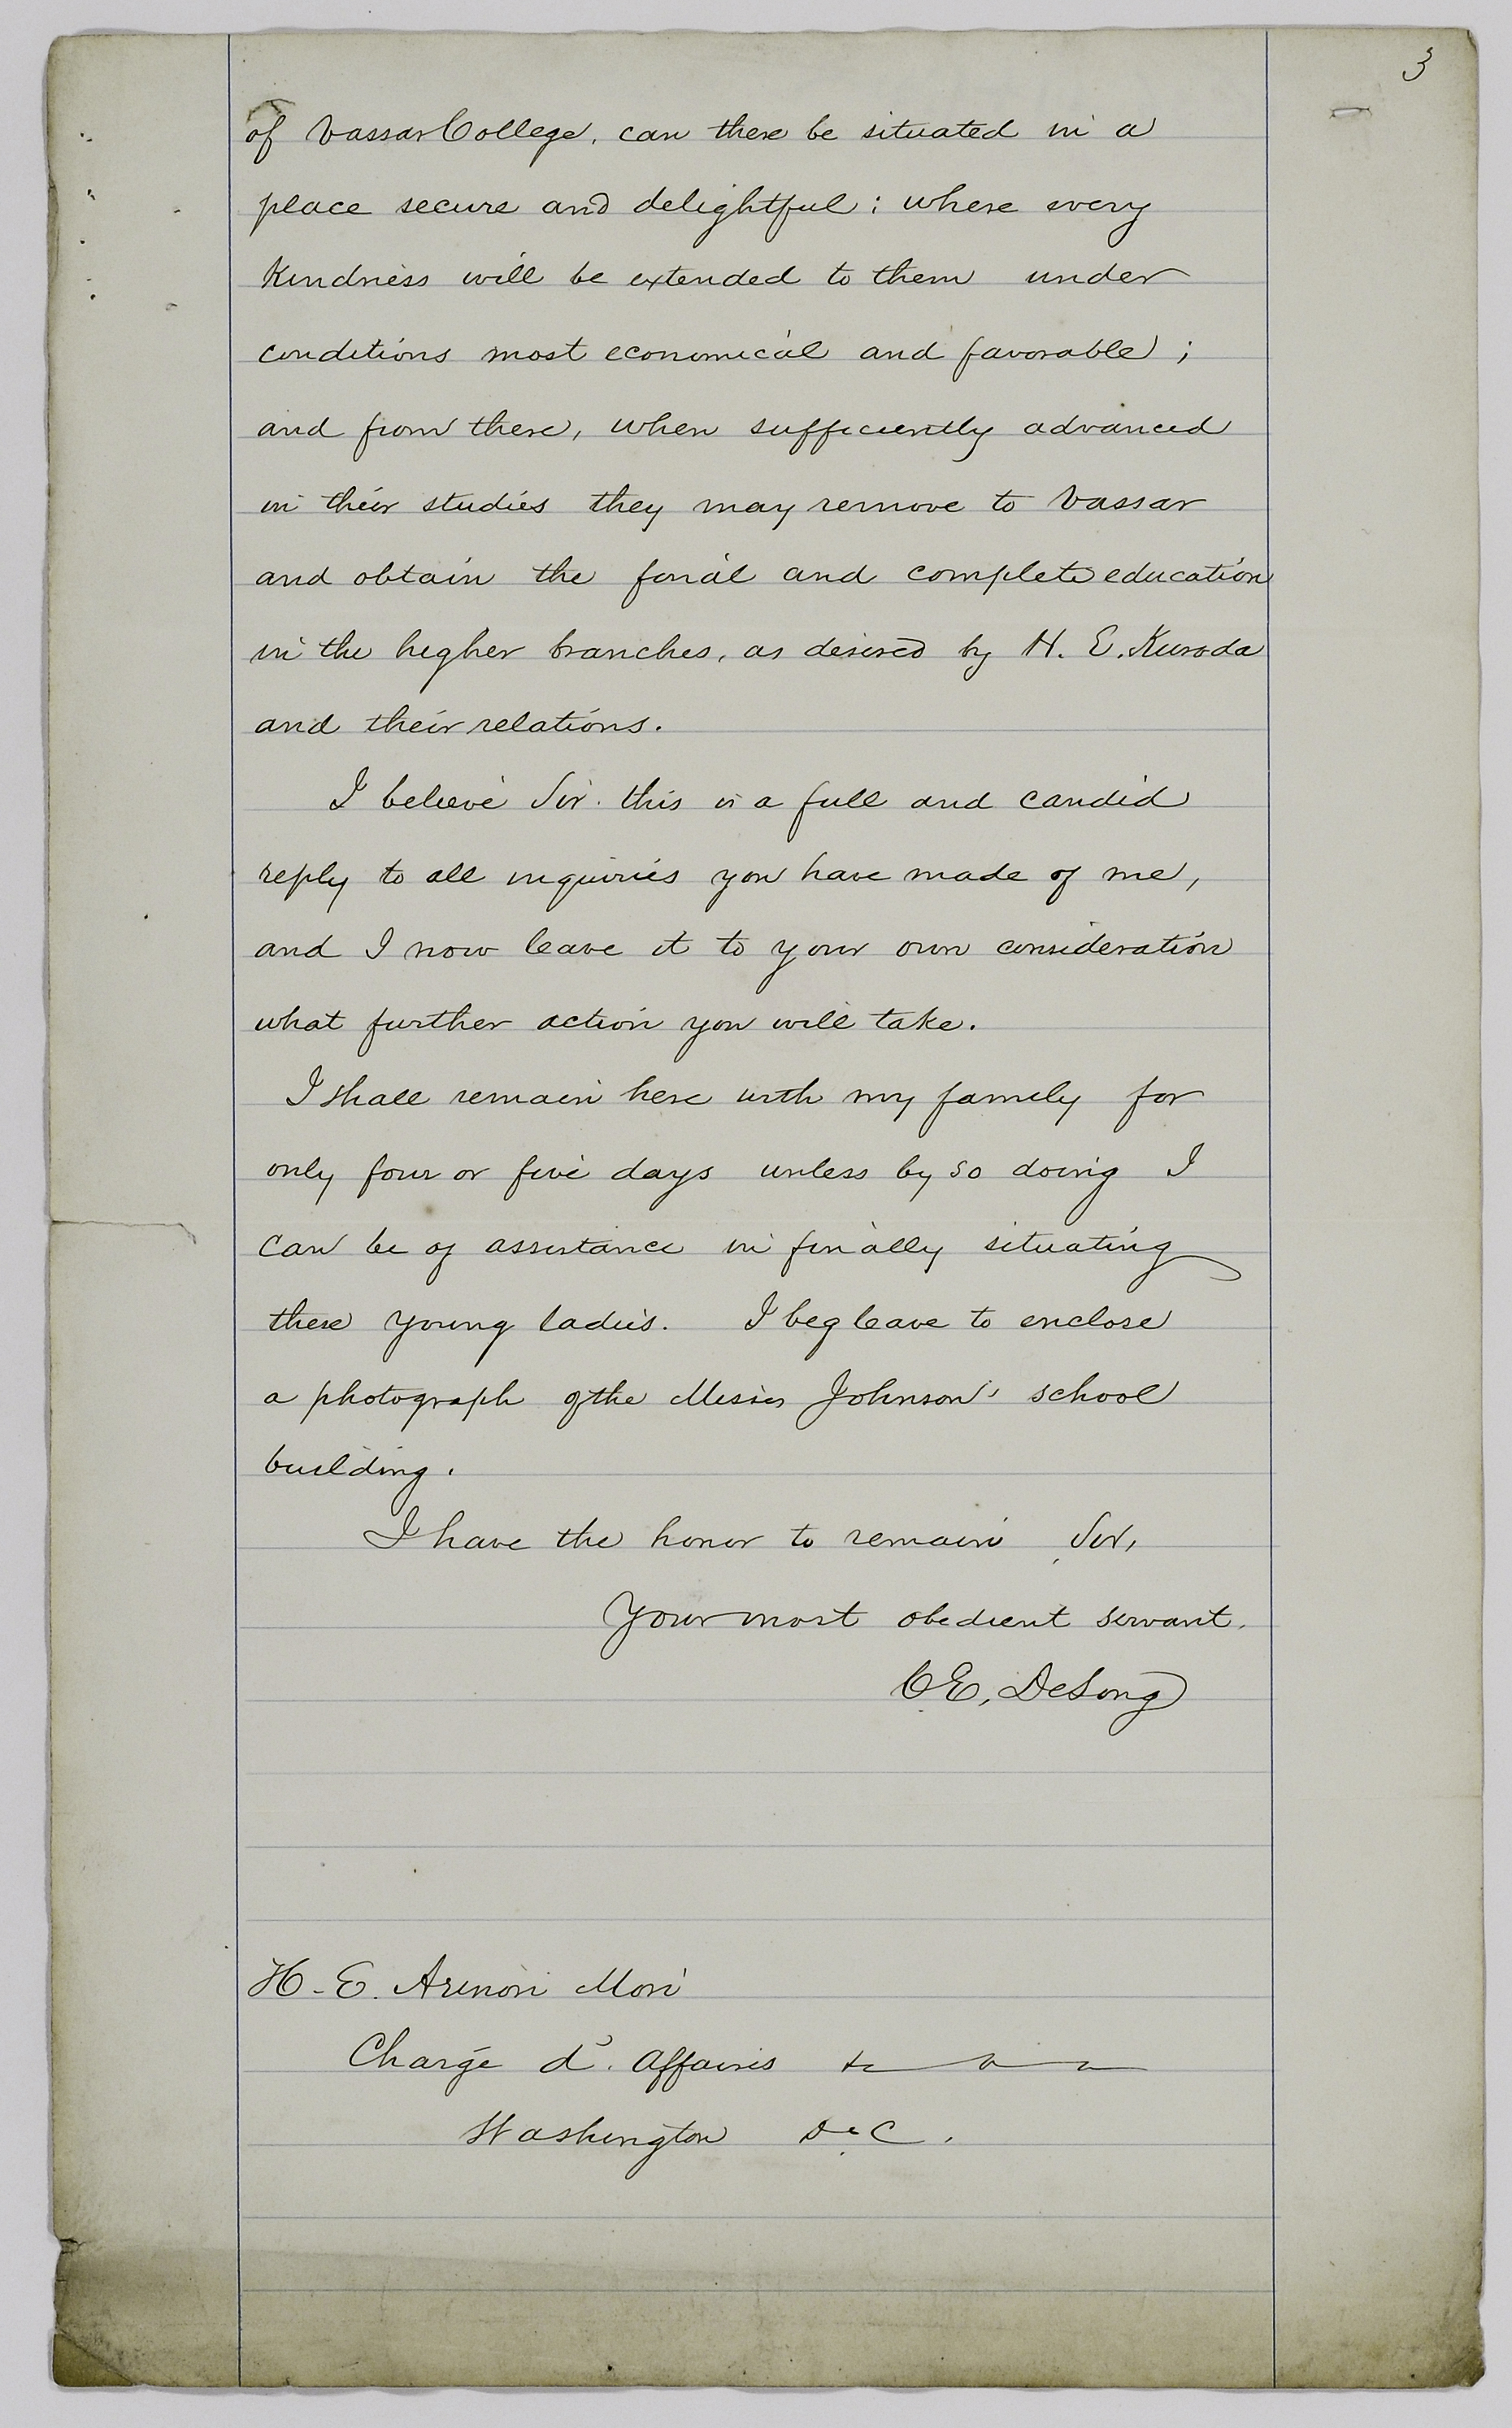 3
of Vassar College, can there be situated in a
place secure and delightful: where every
kindness will be extended to them under
conditions most economical and favorable;
and from there, when sufficiently advanced
in their studies they may remove to Vassar
and obtain the final and complete education
in the higher branches, as desired by H. E. Kuroda
and their relations.
I believe Sir. this is a full and candid
reply to all inquiries you have made of me,
and I now leave it to your own consideration
what further action you will take.
I shall remain here with my family for
only four or five days unless by so doing I
can be of assistance in finally situating
these young ladies. I beg leave to enclose
a photograph of the Misses Johnson's school
building.
I have the honor to remain Sir,
Your most obedient servant.
C E, DeLong
H. E. Arinori Mori
Chargé d'. Affaires &c
Washington D. C.